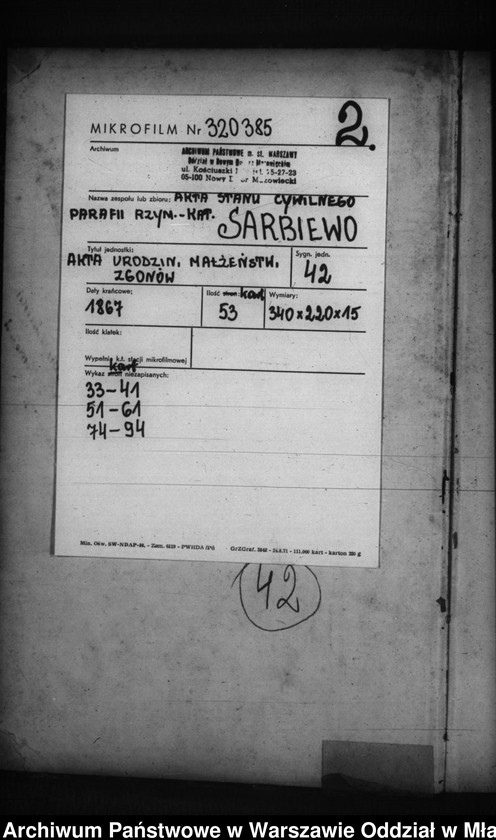 MIKROFILM Nr 320385
2.
Archiwum
ARCHIWUM PAŃSTWOWE m. st. WARSZAWY
Oddział w Nowym
ul. Kościuszki
05-100 Nowy
Nazwa zespołu lub zbioru: AKTA STANU CYWILNEGO
PARAFII RZYM.-KAT. SARBIEWO
Tytuł jednostki:
AKTA URODZIN, MAŁŻEŃSTW,
ZGONÓW
Sygn. jedn.
42
Daty krańcowe:
1867
Ilość stron: kart
53
Wymiary:
340x220x15
Ilość klatek:
Wypełnia k.t. stacji mikrofilmowej
Wykaz stron kart niezapisanych:
33-41
51-61
74-94
Min. Ośw. SW-NDAP-94. - Zam.
GrZGraf.
kart - karton
42
Archiwum Państwowe w Warszawie Oddział w Mła